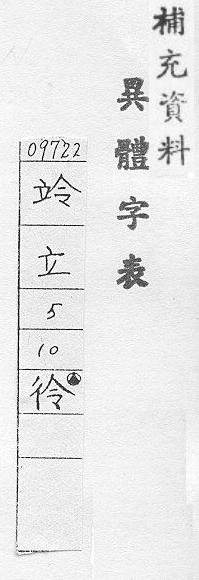 補充資料
異體字表
09722
竛
立
5
10
彾